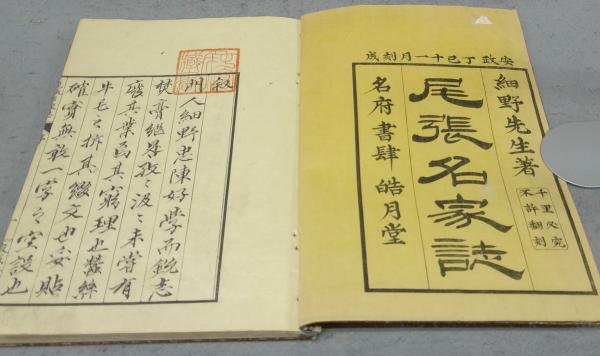 安政丁巳十一月刻成
細野先生著
千里必究
不許翻刻
尾張名家誌
名府書肆 皓月堂
叙
門人細野忠陳好學而銳志
焚膏繼晷孜々汲々未嘗有
廢其業焉其窮理也蠶絲
牛毛之拆其綴文也妥貼
確實無敢一字之空設也